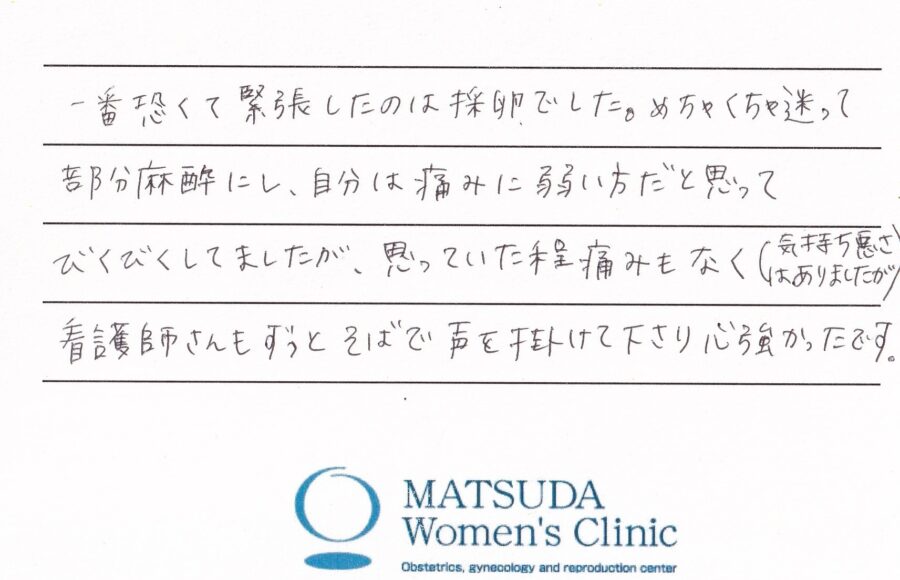 一番恐くて緊張したのは採卵でした。めちゃくちゃ迷って
部分麻酔にし、自分は痛みに弱い方だと思って
びくびくしてましたが、思っていた程痛みもなく(気持ち悪さ
はありましたが)
看護師さんもずっとそばで声を掛けて下さり心強かったです。
MATSUDA
Women's Clinic
Obstetrics, gynecology and reproduction center